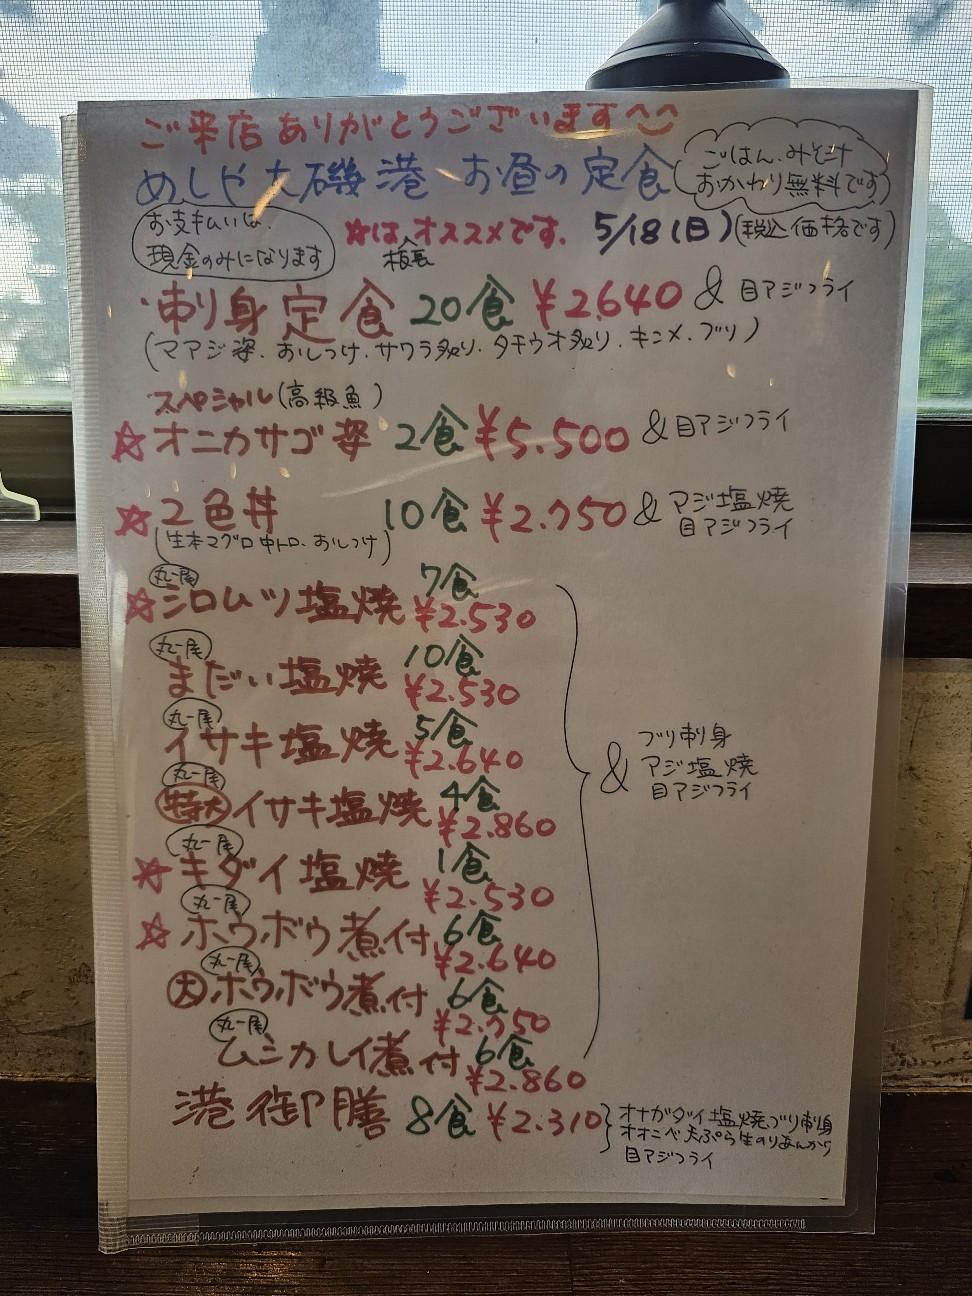 ご来店ありがとうございます^^
めしや大磯港 お昼の定食
ごはん、みそ汁
おかわり無料です
お支払いは、
現金のみになります
☆は、板長オススメです。 5/18(日)(税込価格です)
・刺身定食 20食 ¥2.640 & 目アジフライ
(マアジ姿、おしつけ、サワラ炙り、タチウオ炙り、キンメ、ブリ)
スペシャル(高級魚)
☆オニカサゴ姿 2食 ¥5.500 & 目アジフライ
☆2色丼 10食 ¥2.750 & アジ塩焼
目アジフライ
(生本マグロ中トロ、おしつけ)
丸一尾 7食
☆シロムツ塩焼 ¥2.530
丸一尾 10食
まだい塩焼 ¥2.530
丸一尾 5食
イサキ塩焼 ¥2.640
丸一尾 4食
特大イサキ塩焼 ¥2.860
丸一尾 1食
☆キダイ塩焼 ¥2.530
丸一尾 6食
☆ホウボウ煮付 ¥2.640
丸一尾 6食
大ホウボウ煮付 ¥2.750
丸一尾 6食
ムシカレイ煮付 ¥2.860
& ブリ刺身
アジ塩焼
目アジフライ
港御膳 8食 ¥2.310
オナガダイ塩焼、ブリ刺身
オオニベ天ぷら生のりあんかけ
目アジフライ